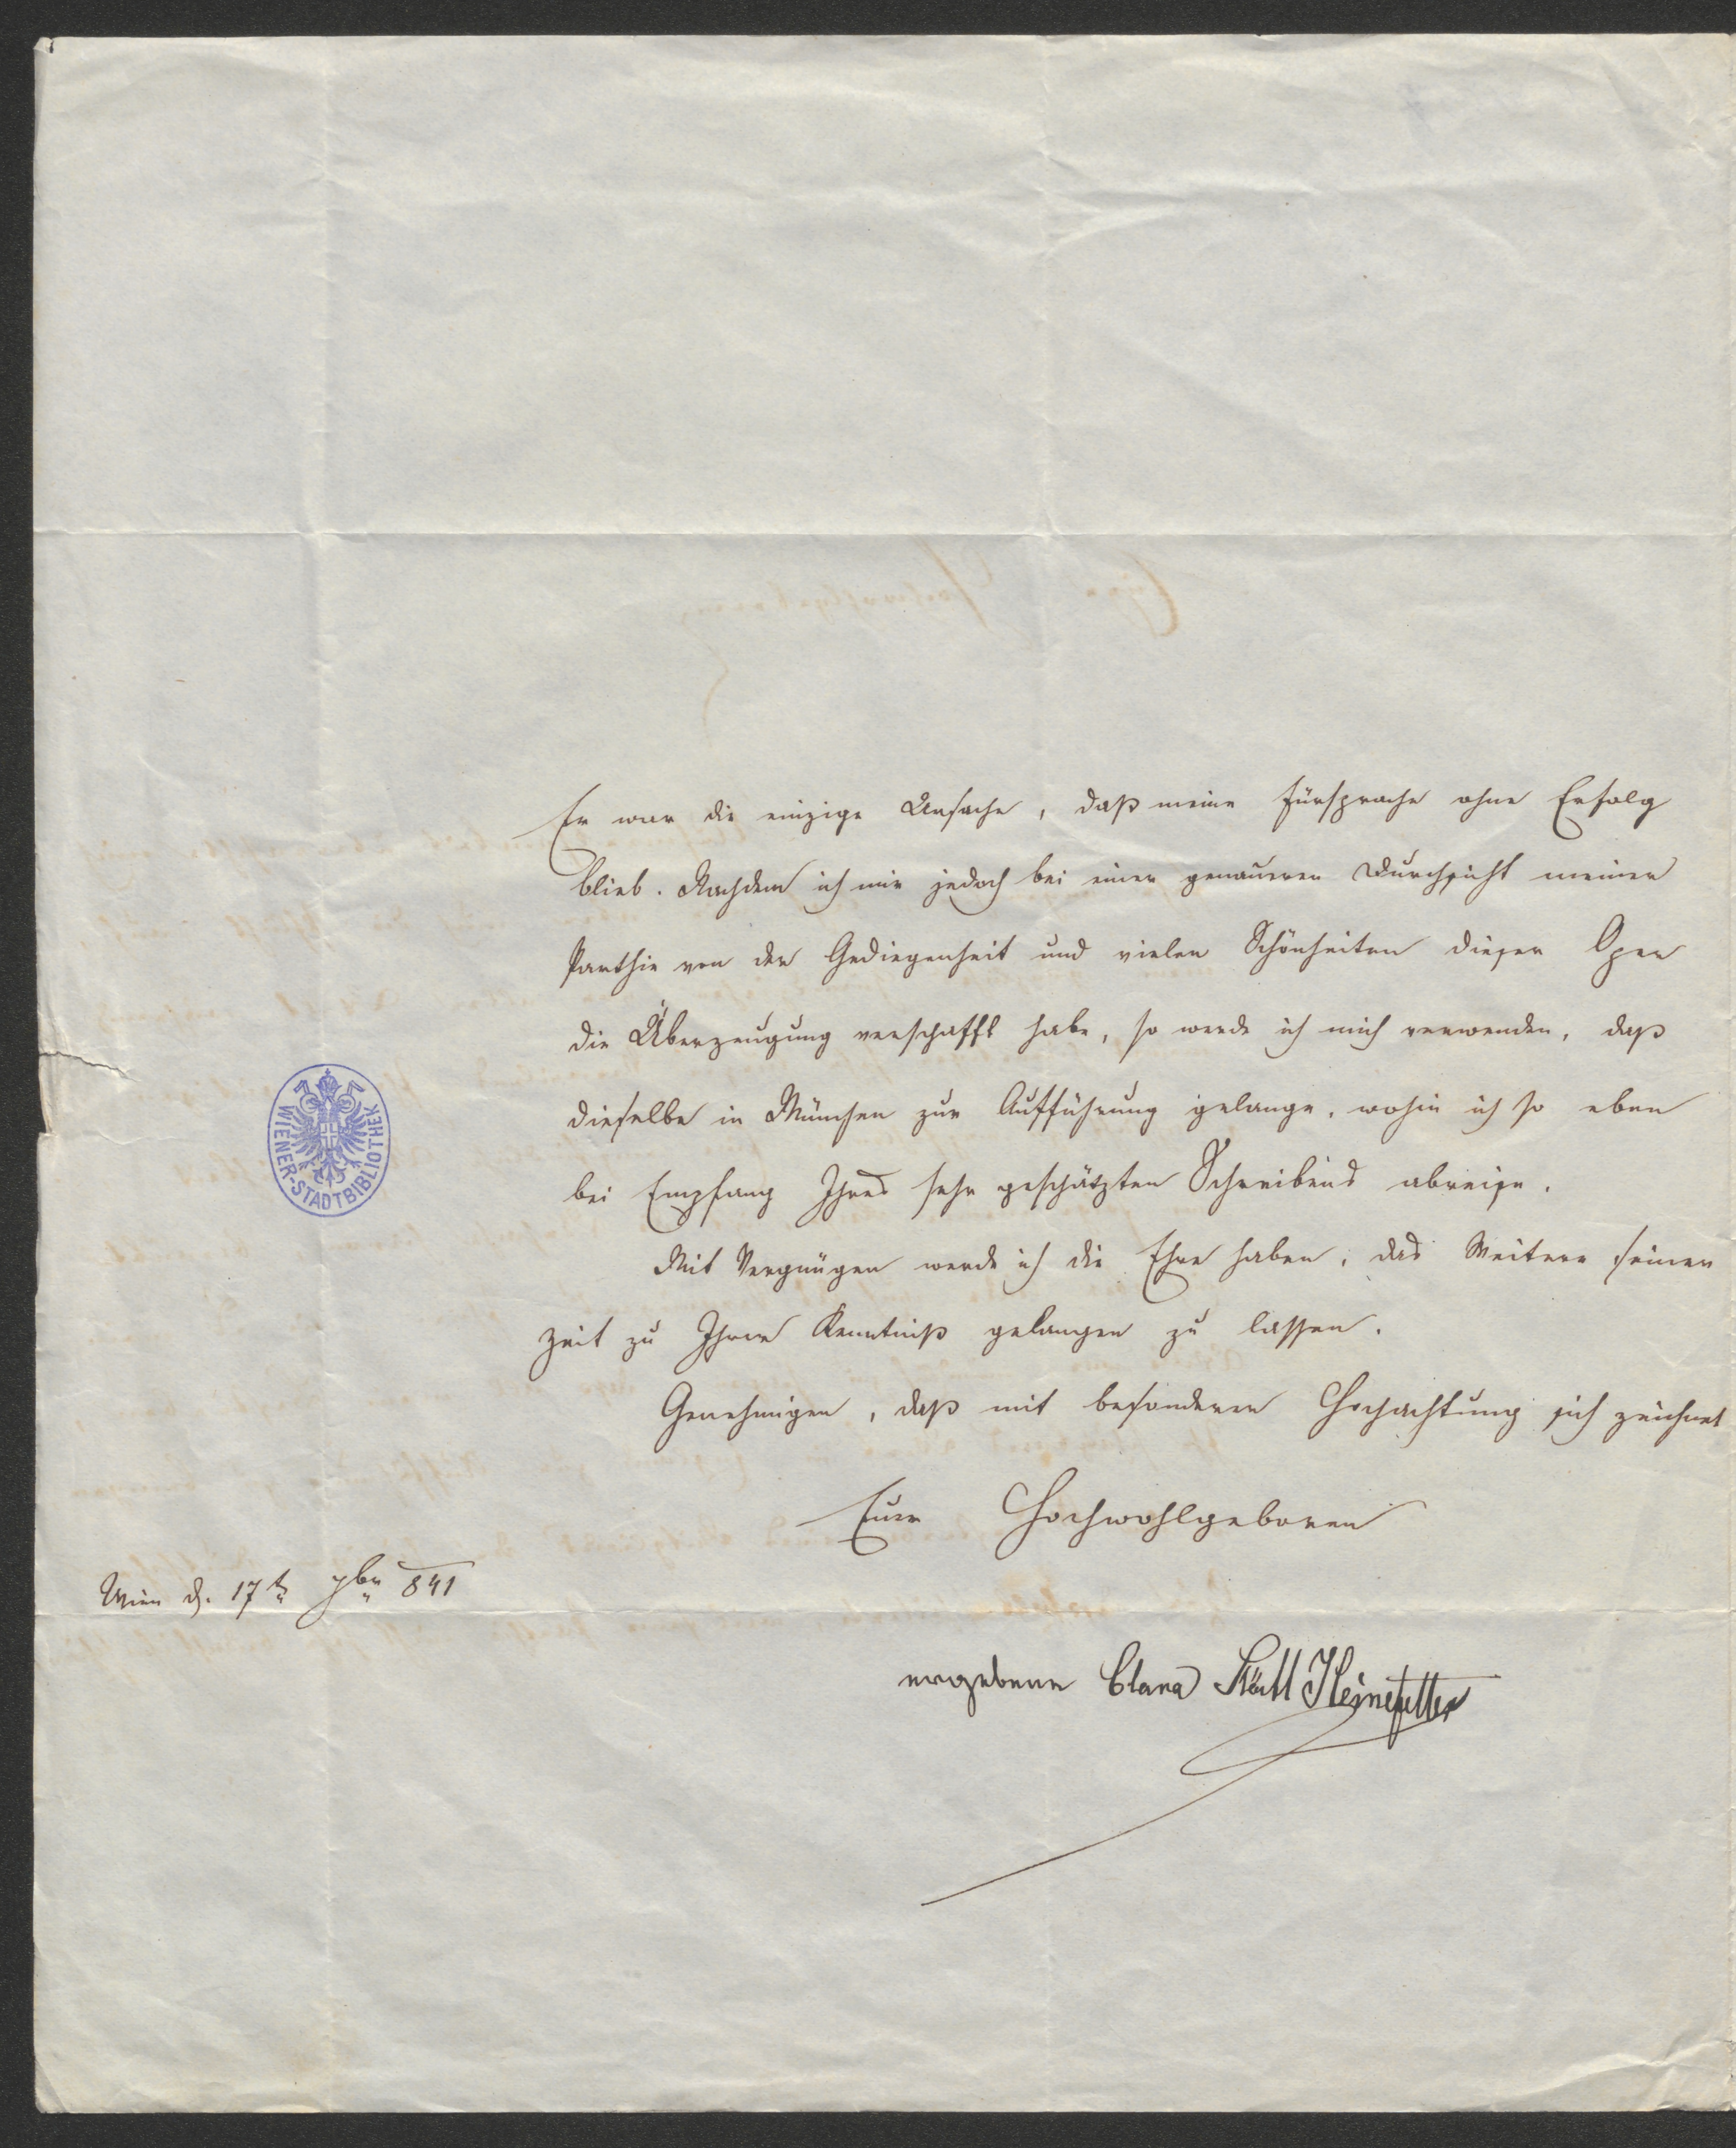 Er war die einzige Ursache, daß meine Fürsprache ohne Erfolg
blieb. Nachdem ich mir jedoch bei einer genaueren Durchsicht meiner
Parthie von der Gediegenheit und vielen Schönheiten dieser Oper
die Überzeugung verschafft habe, so werde ich mich verwenden, daß
dieselbe in München zur Aufführung gelange, wohin ich so eben
bei Empfang Ihres sehr geschätzten Schreibens abreise.
Mit Vergnügen werde ich die Ehre haben, das Weitere seiner
Zeit zu Ihrer Kenntniß gelangen zu lassen.
Genehmigen, daß mit besonderer Hochachtung sich zeichnet
Euer Hochwohlgeboren
Wien d. 17t 841
ergebene Clara Stöckl Heinefetter
WIENER-STADTBIBLIOTHEK